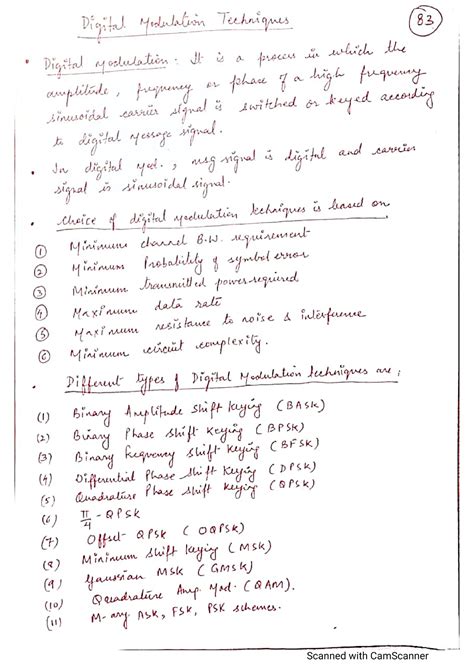 Digital Modulation Techniques
83
• Digital Modulation : It is a process in which the
amplitude, frequency or phase of a high frequency
sinusoidal carrier signal is switched or keyed according
to digital message signal.
• In digital Mod., msg signal is digital and carrier
signal is sinusoidal signal.
• Choice of digital modulation techniques is based on
① Minimum channel B.W. requirement
② Minimum Probability of symbol error
③ Minimum transmitted power required
④ Maximum data rate
⑤ Maximum resistance to noise & interference
⑥ Minimum circuit complexity.
• Different types of Digital Modulation techniques are :
(1) Binary Amplitude Shift Keying (BASK)
(2) Binary Phase Shift Keying (BPSK)
(3) Binary Frequency Shift Keying (BFSK)
(4) Differential Phase Shift Keying (DPSK)
(5) Quadrature Phase Shift Keying (QPSK)
(6) π/4 - QPSK
(7) Offset - QPSK (OQPSK)
(8) Minimum Shift Keying (MSK)
(9) Gaussian MSK (GMSK)
(10) Quadrature Amp. Mod. (QAM).
(11) M-ary ASK, FSK, PSK schemes.
Scanned with CamScanner